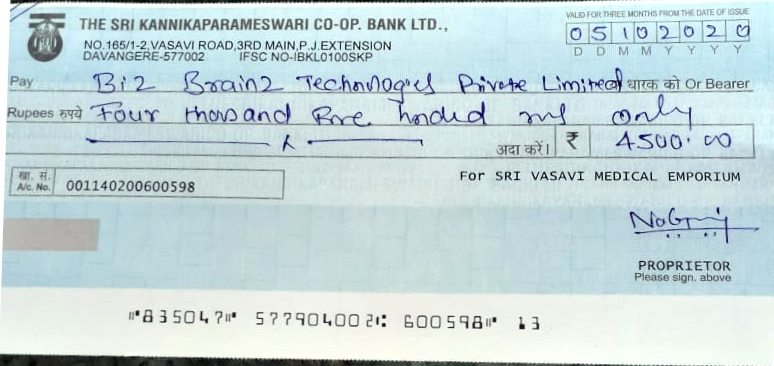 THE SRI KANNIKAPARAMESWARI CO-OP. BANK LTD.,
NO.165/1-2, VASAVI ROAD, 3RD MAIN, P.J. EXTENSION
DAVANGERE-577002 IFSC NO-IBKL0100SKP
VALID FOR THREE MONTHS FROM THE DATE OF ISSUE
05102020
D D M M Y Y Y Y
Pay Biz Brainz Technologies Private Limited धारक को Or Bearer
Rupees रुपये Four thousand five hunded only
अदा करें। ₹ 4500.00
खा. सं.
A/c. No. 001140200600598
For SRI VASAVI MEDICAL EMPORIUM
PROPRIETOR
Please sign. above
⑈835047⑈ 577904002⑆ 600598⑈ 13